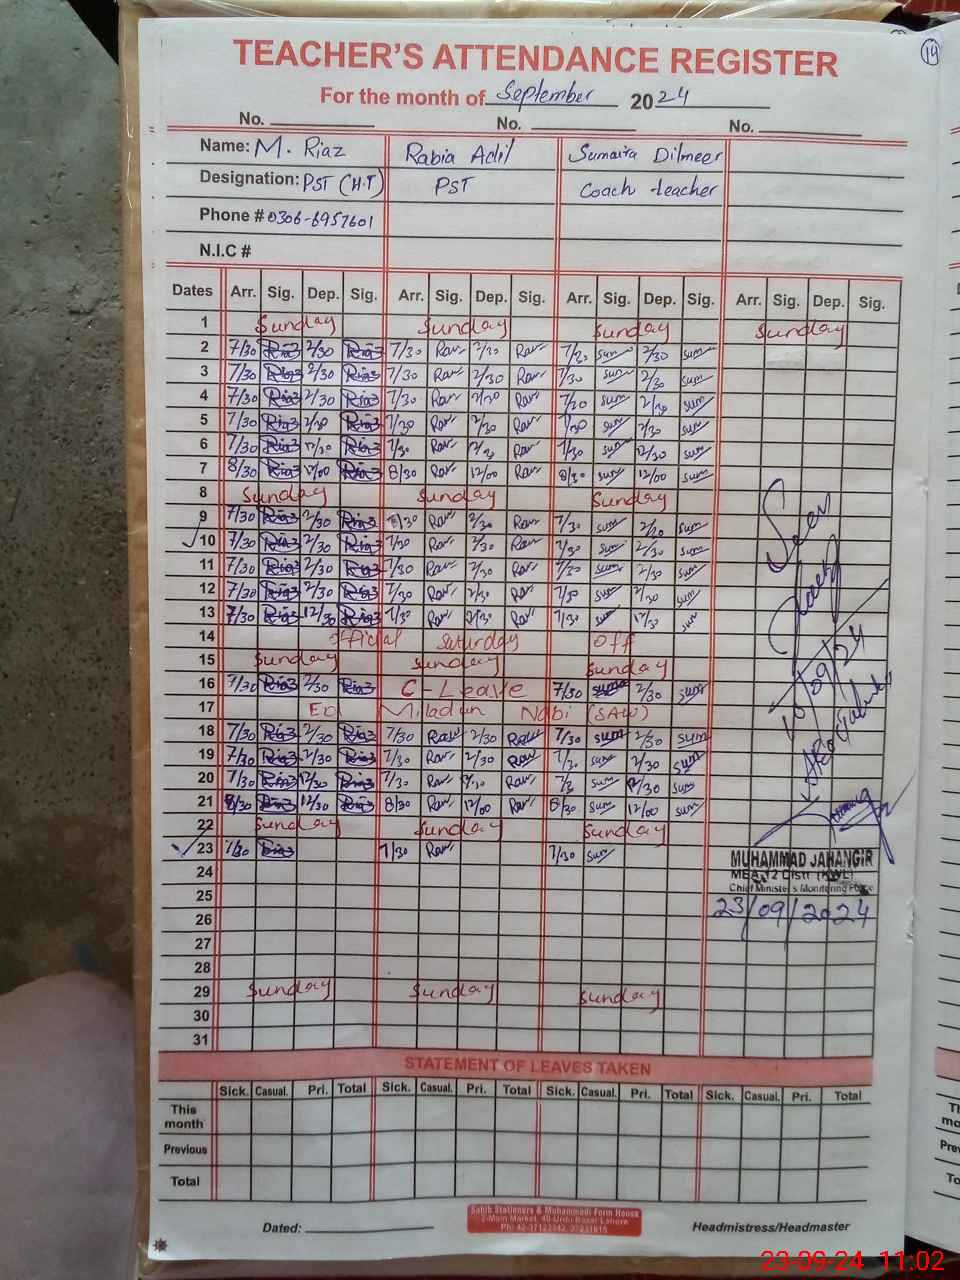 14
TEACHER'S ATTENDANCE REGISTER
For the month of September 2024
No. No. No.
Name: M. Riaz Rabia Adil Sumaira Dilmeer
Designation: PST (H.T) PST Coach teacher
Phone # 0306-6957601
N.I.C #
Dates Arr. Sig. Dep. Sig. Arr. Sig. Dep. Sig. Arr. Sig. Dep. Sig. Arr. Sig. Dep. Sig.
1 Sunday Sunday Sunday Sunday
2 7/30 Riaz 2/30 Riaz 7/30 2/30 7/30 sum 2/30 sum
3 7/30 Riaz 2/30 Riaz 7/30 2/30 7/30 sum 2/30 sum
4 7/30 Riaz 2/30 Riaz 7/30 2/30 7/30 sum 2/30 sum
5 7/30 Riaz 2/30 Riaz 7/30 2/30 7/30 sum 2/30 sum
6 7/30 Riaz 12/30 Riaz 7/30 7/30 sum 12/30 sum
7 8/30 Riaz 12/00 Riaz 8/30 12/00 8/30 sum 12/00 sum
8 Sunday Sunday Sunday
9 7/30 Riaz 2/30 Riaz 7/30 2/30 7/30 sum 2/30 sum
10 7/30 Riaz 2/30 Riaz 7/30 2/30 7/30 sum 2/30 sum
11 7/30 Riaz 2/30 Riaz 7/30 2/30 7/30 sum 2/30 sum
12 7/30 Riaz 2/30 Riaz 7/30 2/30 7/30 sum 2/30 sum
13 7/30 Riaz 12/30 Riaz 7/30 12/30 7/30 sum 12/30 sum
14 official Saturday off
15 Sunday Sunday Sunday
16 7/30 Riaz 2/30 Riaz C-Leave 7/30 sum 2/30 sum
17 Eid Miladun Nabi (SAW)
18 7/30 Riaz 2/30 Riaz 7/30 2/30 7/30 sum 2/30 sum
19 7/30 Riaz 2/30 Riaz 7/30 2/30 7/30 sum 2/30 sum
20 7/30 Riaz 12/30 Riaz 7/30 12/30 7/30 sum 12/30 sum
21 8/30 Riaz 12/30 Riaz 8/30 12/00 8/30 sum 12/00 sum
22 Sunday Sunday Sunday
23 7/30 Riaz 7/30 7/30 sum
24
25
26
27
28
29 Sunday Sunday Sunday
30
31
Seen
10/09/24
MUHAMMAD JAHANGIR
MEA 12 Distt (KWL)
Chief Minister's Monitoring Force
23/09/2024
STATEMENT OF LEAVES TAKEN
Sick. Casual. Pri. Total Sick. Casual. Pri. Total Sick. Casual. Pri. Total Sick. Casual. Pri. Total
This month
Previous
Total
Dated:
Sahib Stationers & Muhammadi Form House
2-Main Market, 40-Urdu Bazar Lahore
Headmistress/Headmaster
23-09-24 11:02